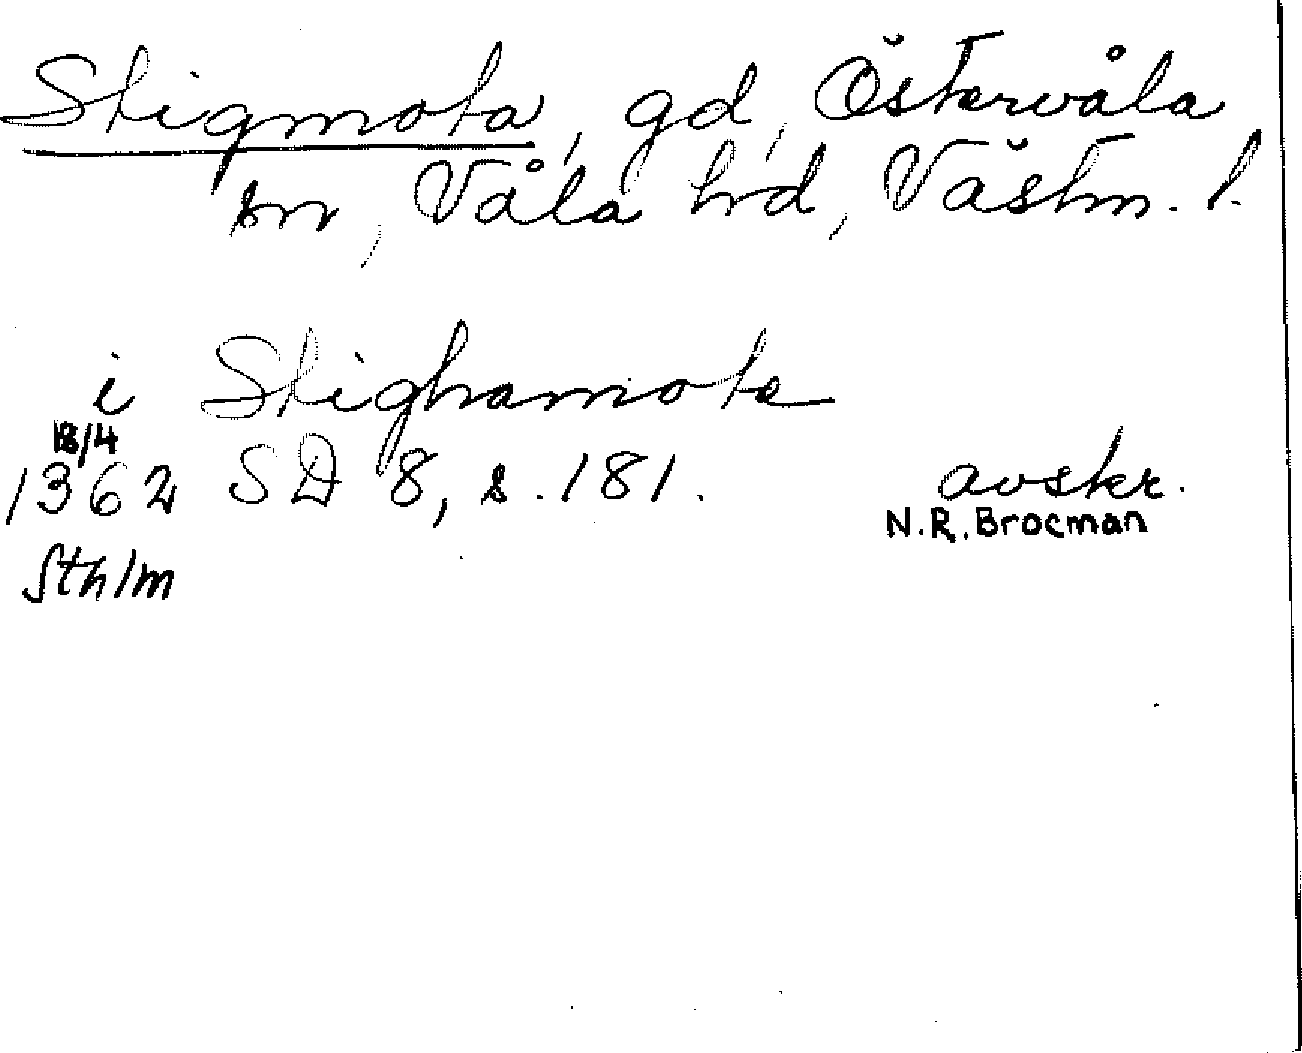 Stigmota, gd, Östervåla
sn, Våla hd, Västm. l.
i Stighamota
18/4
1362 SD 8, s. 181. avskr.
N.R. Brocman
Sthlm